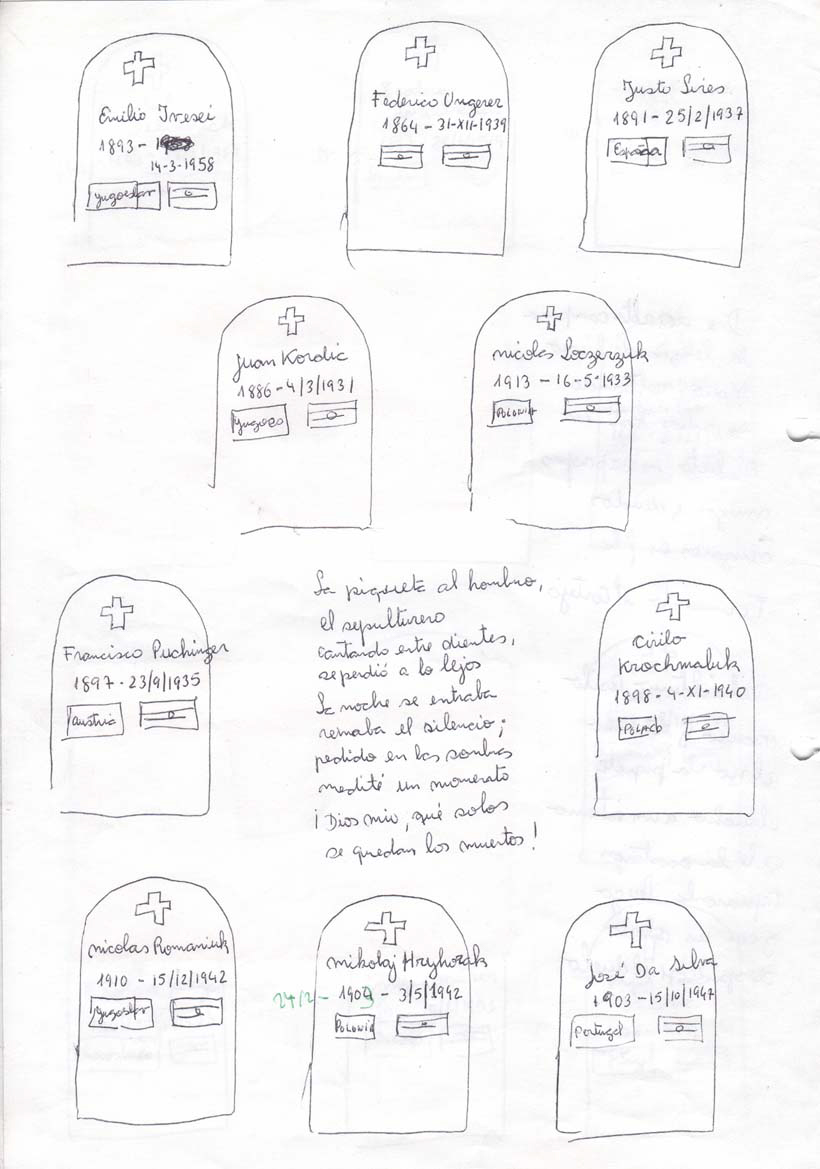 Emilio Ivesei
1893 -
14-3-1958
yugoeslav
Federico Ungerer
1864 - 31-XII-1939
Justo Sires
1891 - 25/2/1937
España
Juan Kordic
1886 - 4/3/1931
yugoes
nicolas Loczerzuk
1913 - 16-5-1933
POLONIA
Francisco Puchinger
1897 - 23/9/1935
austria
La piqueta al hombro,
el sepulturero
cantando entre dientes,
se perdió a lo lejos
La noche se entraba
reinaba el silencio;
pedido en las sombras
medité un momento
¡Dios mio, qué solos
se quedan los muertos!
Cirilo
Krochmaluk
1898 - 4-XI-1940
POLACO
nicolas Romaniuk
1910 - 15/12/1942
yugoeslav
mikolaj Hryhorak
24/2 - 1903 - 3/5/1942
POLONIA
José Da Silva
1903 - 15/10/1947
Portugal